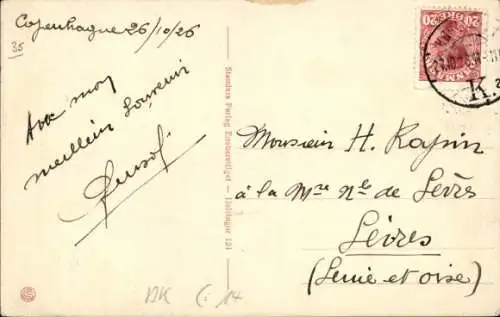 Copenhague 26/10/26
35
Avec mon
meilleur souvenir
20 ØRE 20
DANMARK
K.
Stenders Forlag Eneberettiget - Helsingør 121
Monsieur H. Rapin
à la Mre Nle de Sèvres
Sèvres
(Seine et oise)
DK
14